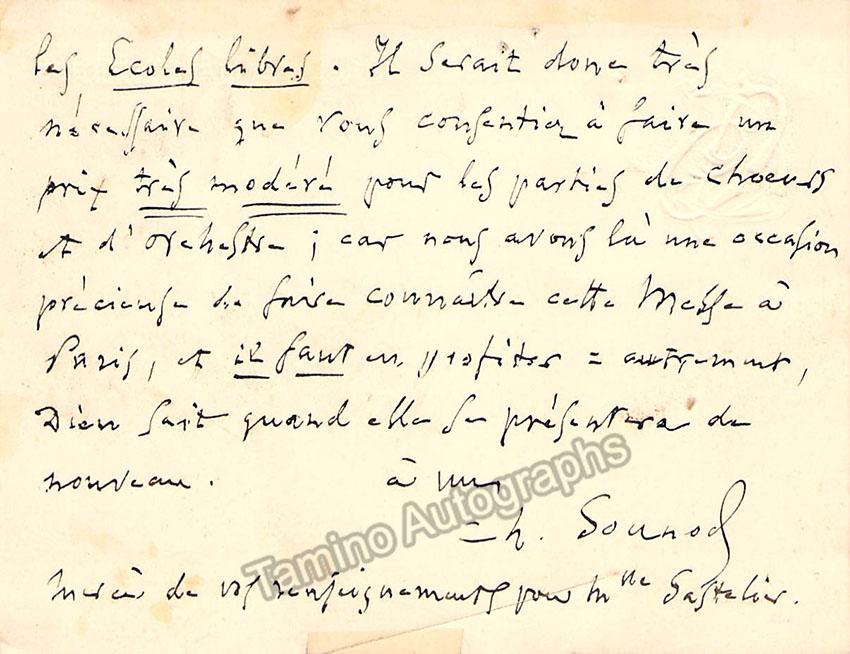 les Ecoles libres. Il serait donc très
nécessaire que vous consentiez à faire un
prix très modéré pour les parties de choeurs
et d'orchestre ; car nous avons là une occasion
précieuse de faire connaître cette Messe à
Paris, et il faut en profiter = autrement,
Dieu sait quand elle se présentera de
nouveau. à vous
Ch. Gounod
Merci de vos renseignements pour Mlle
Tamino Autographs